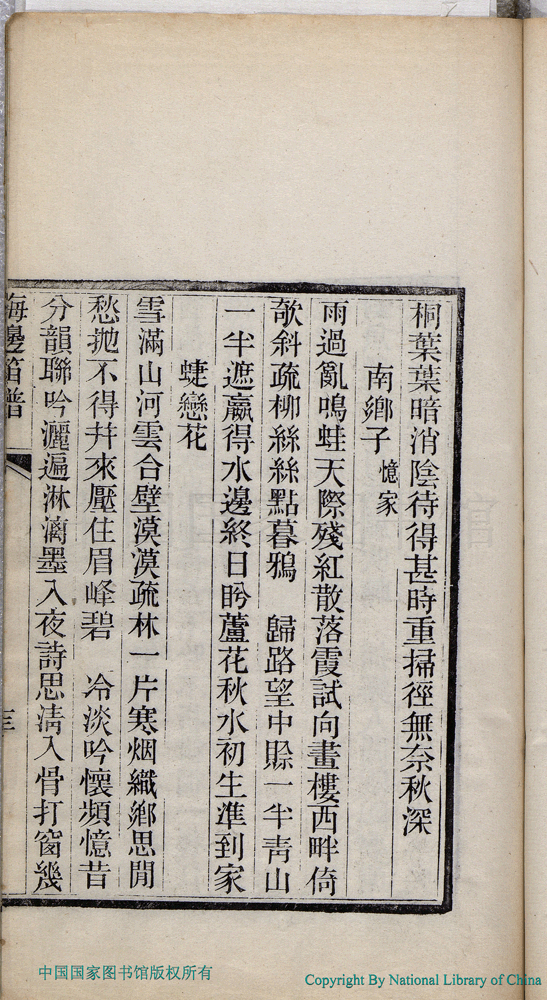 桐葉葉暗消陰待得甚時重掃徑無奈秋深
南鄉子 憶家
雨過亂鳴蛙天際殘紅散落霞試向畫樓西畔倚
欹斜疏柳絲絲點暮鴉 歸路望中賒一半青山
一半遮贏得水邊終日盻蘆花秋水初生準到家
蜨戀花
雪滿山河雲合壁漠漠疏林一片寒烟織鄉思閒
愁拋不得幷來壓住眉峰碧 冷淡吟懷頻憶昔
分韻聯吟灑遍淋漓墨入夜詩思淸入骨打窗幾
海邊笛譜
三
中国国家图书馆版权所有
Copyright By National Library of China